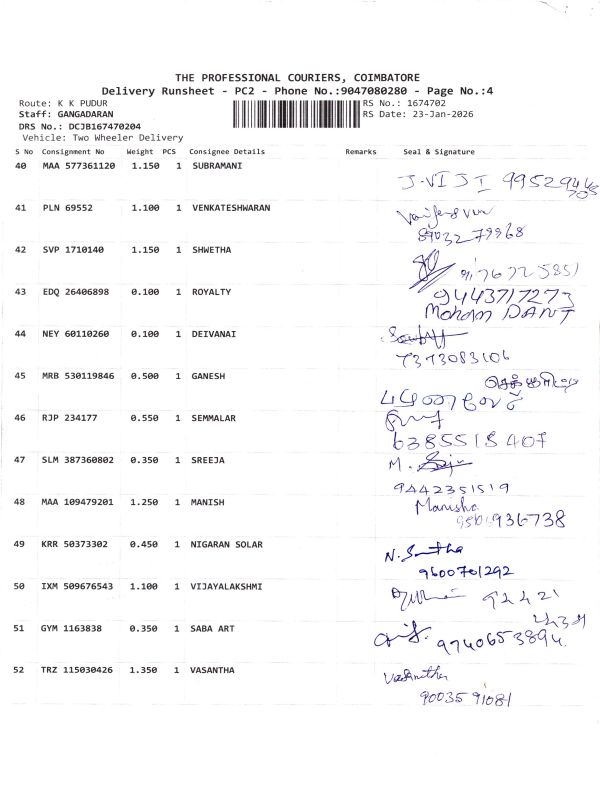 THE PROFESSIONAL COURIERS, COIMBATORE
Delivery Runsheet - PC2 - Phone No.:9047080280 - Page No.:4
Route: K K PUDUR
RS No.: 1674702
Staff: GANGADARAN
RS Date: 23-Jan-2026
DRS No.: DCJB167470204
Vehicle: Two Wheeler Delivery
S No Consignment No Weight PCS Consignee Details Remarks Seal & Signature
40 MAA 577361120 1.150 1 SUBRAMANI
J.VIJI 99529
41 PLN 69552 1.100 1 VENKATESHWARAN
89032 79968
42 SVP 1710140 1.150 1 SHWETHA
43 EDQ 26406898 0.100 1 ROYALTY
9443717273
Mohan DANT
44 NEY 60110260 0.100 1 DEIVANAI
7373083106
45 MRB 530119846 0.500 1 GANESH
46 RJP 234177 0.550 1 SEMMALAR
6385515407
47 SLM 387360802 0.350 1 SREEJA
M.
9442351519
48 MAA 109479201 1.250 1 MANISH
Manisha
936738
49 KRR 50373302 0.450 1 NIGARAN SOLAR
N. Santha
9600701292
50 IXM 509676543 1.100 1 VIJAYALAKSHMI
51 GYM 1163838 0.350 1 SABA ART
9740653894
52 TRZ 115030426 1.350 1 VASANTHA
Vasantha
90035 91081